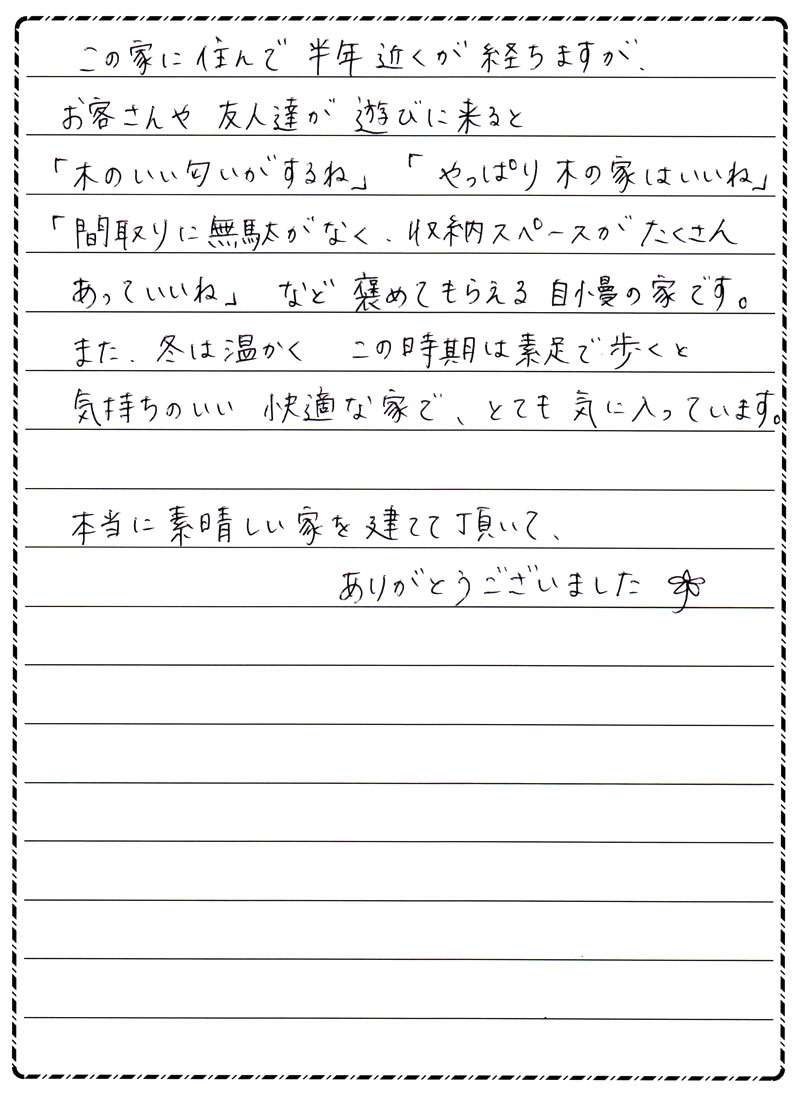 この家に住んで 半年 近くが 経ちますが、
お客さんや 友人達が 遊びに来ると
「木のいい匂いがするね」 「やっぱり 木の家はいいね」
「間取りに無駄がなく、収納スペースが たくさん
あっていいね」 など 褒めてもらえる 自慢の家です。
また、冬は温かく この時期は素足で歩くと
気持ちのいい 快適な家で、とても 気に入っています。
本当に 素晴しい家を 建てて頂いて、
ありがとうございました